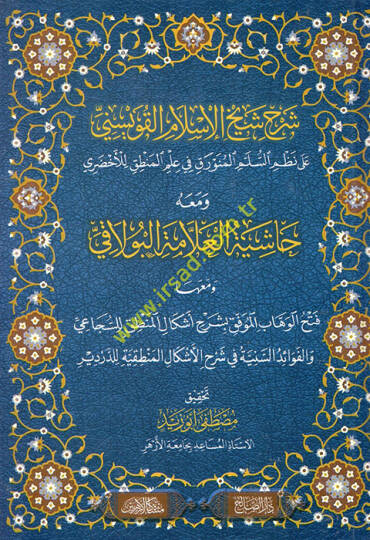 شرح شيخ الإسلام القويسني
على نظم السلم المنورق في علم المنطق للأخضري
ومعه
حاشية العلامة البولاقي
ومعها
فتح الوهاب الموفق بشرح أشكال المنطق للسجاعي
والفوائد السنية في شرح الأشكال المنطقية للدردير
تحقيق
مصطفى أبو زيد
الأستاذ المساعد بجامعة الأزهر
www.irsad.com.tr